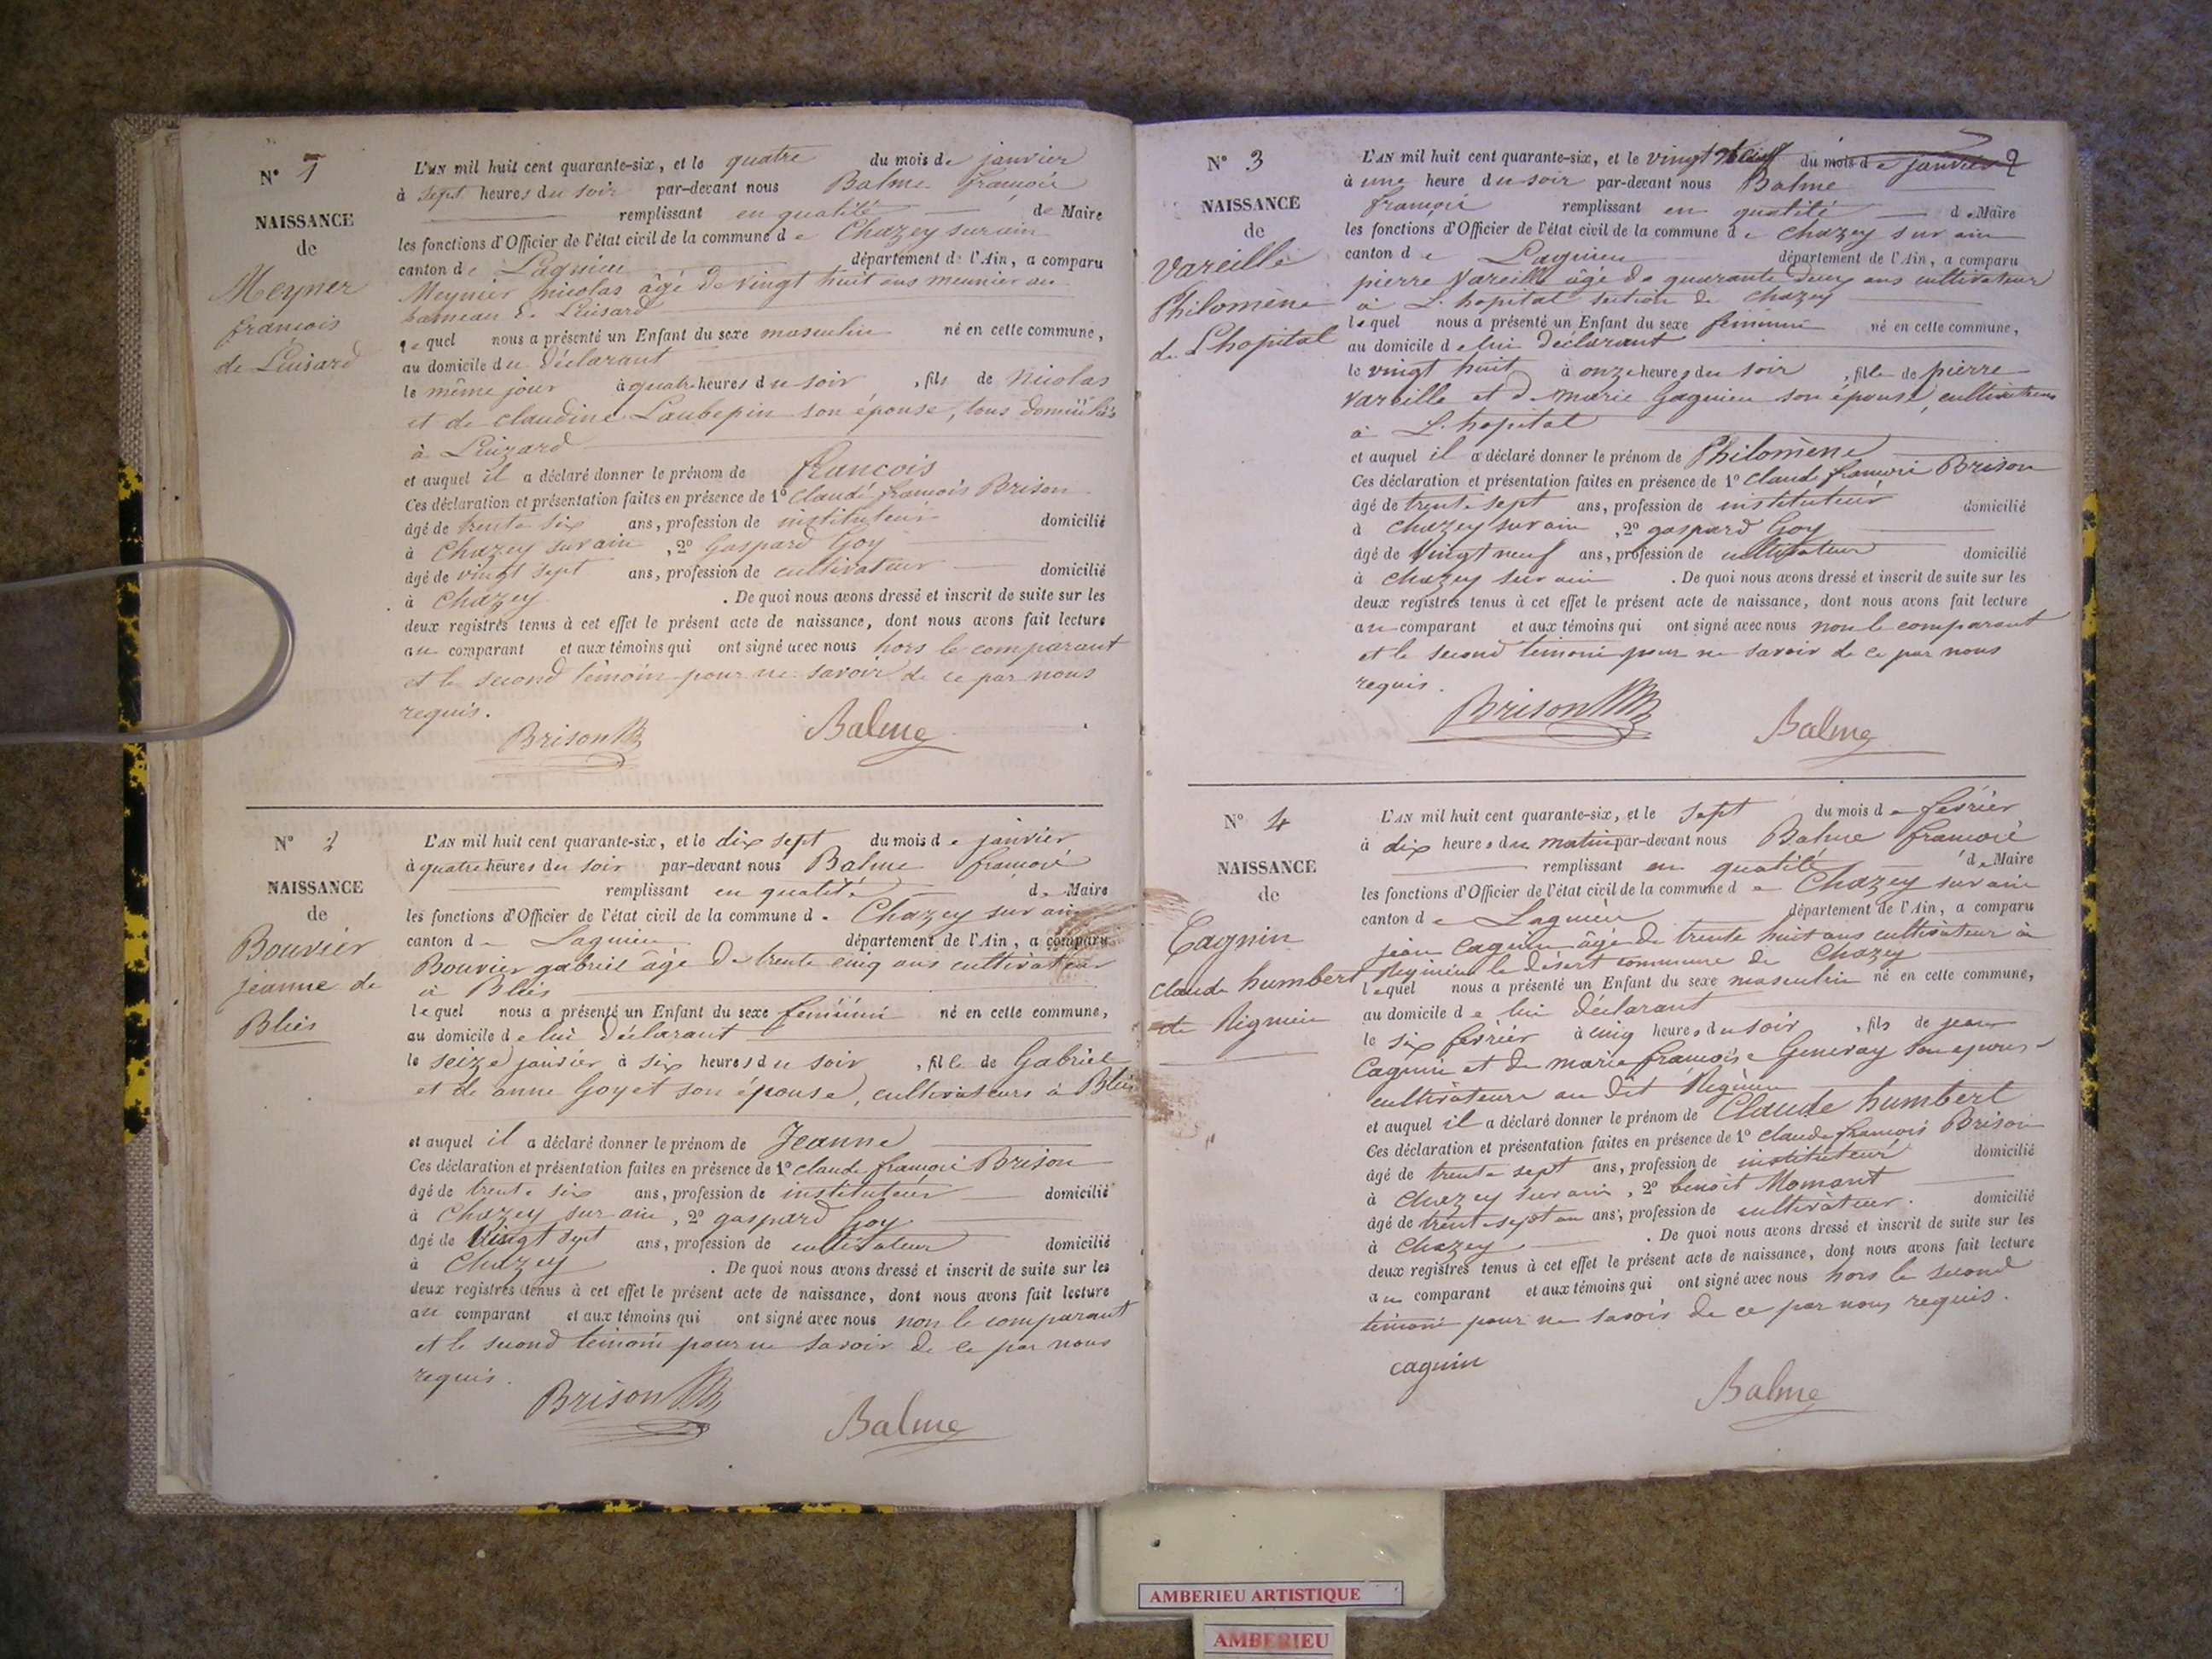 N° 1
NAISSANCE
de
Meynier
françois
de Luisard
L'AN mil huit cent quarante-six, et le quatre du mois de janvier
à sept heures du soir par-devant nous Balme françois
remplissant en qualité de Maire
les fonctions d'Officier de l'état civil de la commune de Chazey sur ain
canton de Lagnieu département de l'Ain, a comparu
Meynier nicolas âgé de vingt huit ans meunier au
hameau de Luisard
lequel nous a présenté un Enfant du sexe masculin né en cette commune,
au domicile du Déclarant
le même jour à quatre heures du soir, fils de Nicolas
et de claudine Laubepin son épouse, tous domiciliés
à Luizard
et auquel il a déclaré donner le prénom de francois
Ces déclaration et présentation faites en présence de 1° Claude françois Brison
âgé de trente six ans, profession de instituteur domicilié
à Chazey sur ain, 2° Gaspard Goy
âgé de vingt sept ans, profession de cultivateur domicilié
à Chazey. De quoi nous avons dressé et inscrit de suite sur les
deux registres tenus à cet effet le présent acte de naissance, dont nous avons fait lecture
au comparant et aux témoins qui ont signé avec nous hors le comparant
et le second témoin pour ne savoir de ce par nous
requis.
Brison Balme
N° 2
NAISSANCE
de
Bouvier
jeanne de
Blies
L'AN mil huit cent quarante-six, et le dix sept du mois de janvier
à quatre heures du soir par-devant nous Balme françois
remplissant en qualité de Maire
les fonctions d'Officier de l'état civil de la commune de Chazey sur ain
canton de Lagnieu département de l'Ain, a comparu
Bouvier gabriel âgé de trente cinq ans cultivateur
à Blies
lequel nous a présenté un Enfant du sexe féminin né en cette commune,
au domicile de lui déclarant
le seize janvier à six heures du soir, fille de Gabriel
et de anne Goyet son épouse, cultivateurs à Blies
et auquel il a déclaré donner le prénom de Jeanne
Ces déclaration et présentation faites en présence de 1° claude françois Brison
âgé de trente six ans, profession de instituteur domicilié
à Chazey sur ain, 2° gaspard Goy
âgé de Vingt sept ans, profession de cultivateur domicilié
à Chazey. De quoi nous avons dressé et inscrit de suite sur les
deux registres tenus à cet effet le présent acte de naissance, dont nous avons fait lecture
au comparant et aux témoins qui ont signé avec nous non le comparant
et le second témoin pour ne savoir de ce par nous
requis.
Brison Balme
N° 3
NAISSANCE
de
Vareille
Philomène
de L'hopital
L'AN mil huit cent quarante-six, et le vingt neuf du mois de janvier
à une heure du soir par-devant nous Balme
françois remplissant en qualité de Maire
les fonctions d'Officier de l'état civil de la commune de chazey sur ain
canton de Lagnieu département de l'Ain, a comparu
pierre Vareille âgé de quarante deux ans cultivateur
à L'hopital section de Chazey
lequel nous a présenté un Enfant du sexe féminin né en cette commune,
au domicile de lui déclarant
le vingt huit à onze heures du soir, fille de pierre
Vareille et de marie Gagnieu son épouse, cultivateurs
à L'hopital
et auquel il a déclaré donner le prénom de Philomène
Ces déclaration et présentation faites en présence de 1° Claude françois Brison
âgé de trente sept ans, profession de instituteur domicilié
à Chazey sur ain, 2° gaspard Goy
âgé de Vingt neuf ans, profession de cultivateur domicilié
à chazey sur ain. De quoi nous avons dressé et inscrit de suite sur les
deux registres tenus à cet effet le présent acte de naissance, dont nous avons fait lecture
au comparant et aux témoins qui ont signé avec nous non le comparant
et le second témoin pour ne savoir de ce par nous
requis.
Brison Balme
N° 4
NAISSANCE
de
Cagnin
claude humbert
de Rignieu
L'AN mil huit cent quarante-six, et le sept du mois de février
à dix heures du matin par-devant nous Balme françois
remplissant en qualité de Maire
les fonctions d'Officier de l'état civil de la commune de Chazey sur ain
canton de Lagnieu département de l'Ain, a comparu
jean Cagnin âgé de trente huit ans cultivateur à
Rignieu le désert commune de Chazey
lequel nous a présenté un Enfant du sexe masculin né en cette commune,
au domicile de lui déclarant
le six février à cinq heures du soir, fils de jean
Cagnin et de marie françoise Genevay son épouse
cultivateurs au dit Rignieu
et auquel il a déclaré donner le prénom de Claude humbert
Ces déclaration et présentation faites en présence de 1° claude françois Brison
âgé de trente sept ans, profession de instituteur domicilié
à Chazey sur ain, 2° benoît Momant
âgé de trente sept ans, profession de cultivateur. domicilié
à Chazey. De quoi nous avons dressé et inscrit de suite sur les
deux registres tenus à cet effet le présent acte de naissance, dont nous avons fait lecture
au comparant et aux témoins qui ont signé avec nous hors le second
témoin pour ne savoir de ce par nous requis.
cagnin Balme
AMBERIEU ARTISTIQUE
AMBERIEU